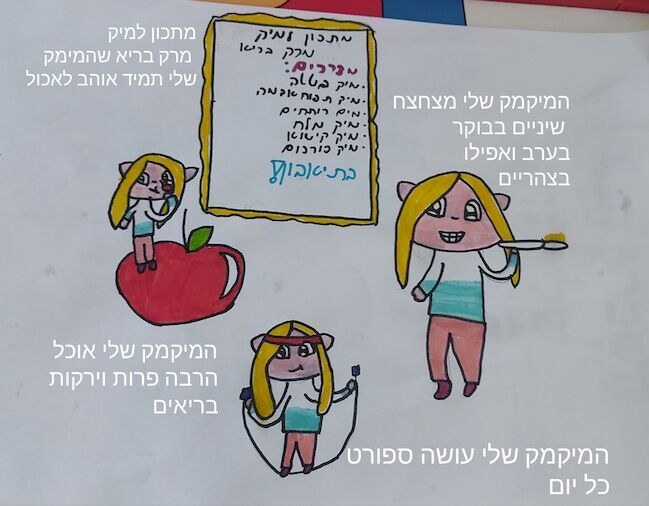 מתכון למיק
מרק בריא שהמימק
שלי תמיד אוהב לאכול
מתכון למיק
מרק בריא
מצרכים:
·מיק בטטה
·מיק תפוח אדמה
·מים רותחים
·מיק מלח
·מיק קישוא
·מיק כורכום
בתיאבון
המיקמק שלי מצחצח
שיניים בבוקר
בערב ואפילו
בצהריים
המיקמק שלי אוכל
הרבה פרות וירקות
בריאים
המיקמק שלי עושה ספורט
כל יום